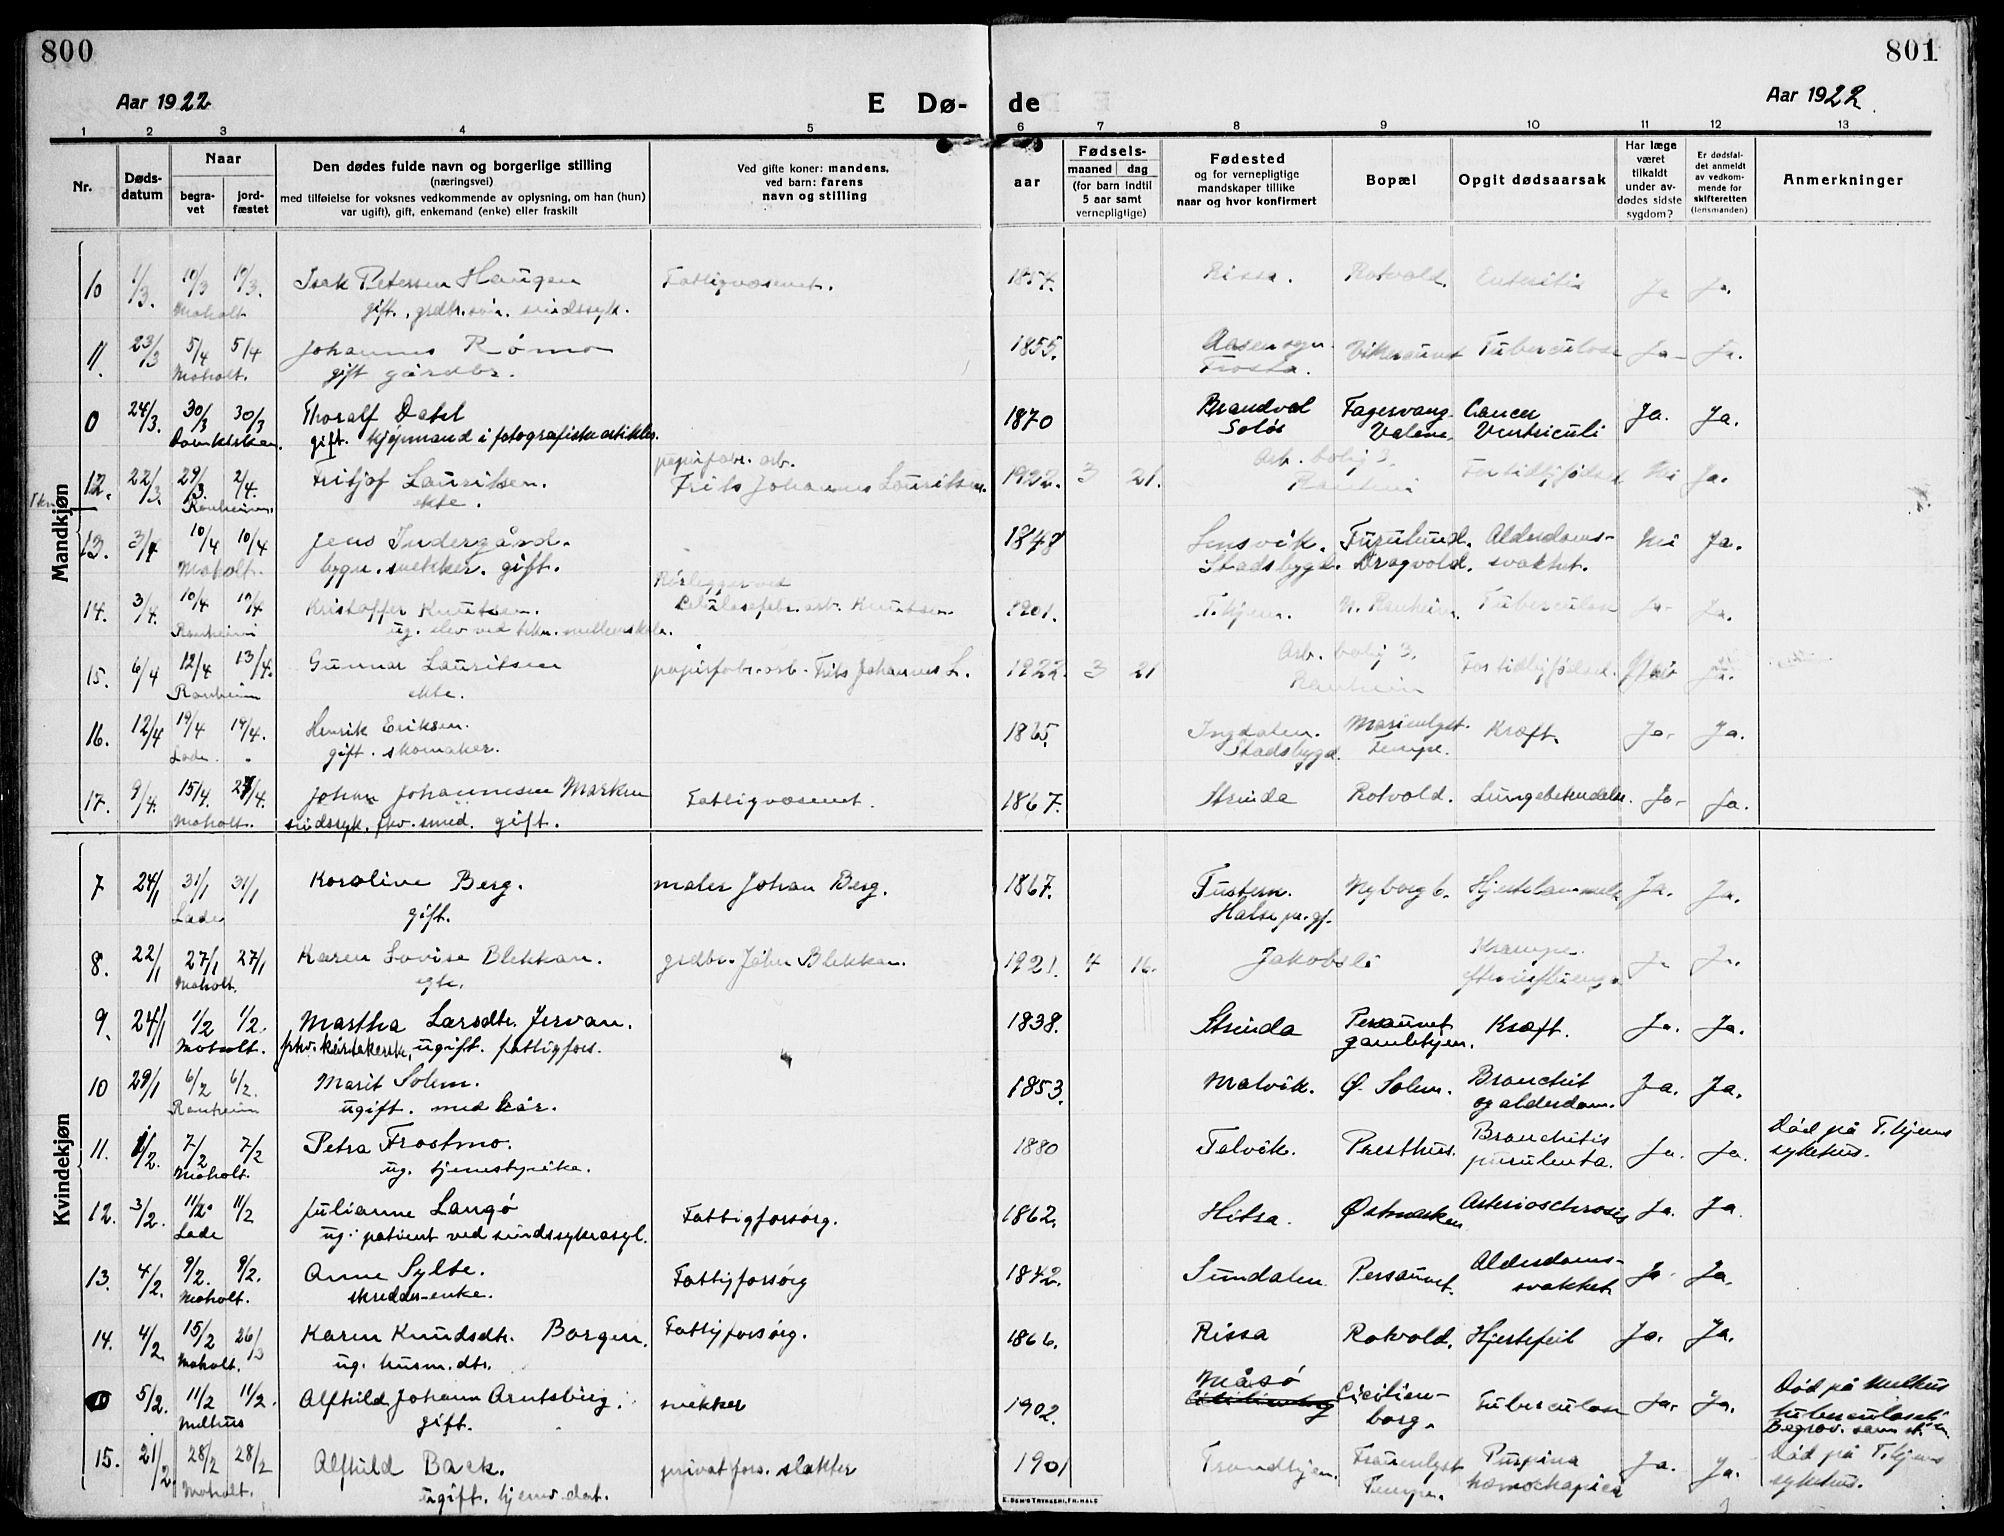 800
801
Aar 1922
E Dø-
de
Aar 1922.
1 2 3 4 5 6 7 8 9 10 11 12 13
Nr.
Døds-
datum
Naar
begra-
vet
jord-
fæstet
Den dødes fulde navn og borgerlige stilling
(næringsvei)
med tilføielse for voksnes vedkommende av oplysning, om han (hun)
var ugift), gift, enkemand (enke) eller fraskilt
Ved gifte koner: mandens,
ved barn: farens
navn og stilling
aar
Fødsels-
maaned dag
(for barn indtil
5 aar samt
vernepligtige)
Fødested
og for vernepligtige
mandskaper tillike
naar og hvor konfirmert
Bopæl
Opgit dødsaarsak
Har læge
været
tilkaldt
under av-
dødes sidste
sygdom?
Er dødsfal-
det anmeldt
av vedkom-
mende for
skifteretten
(lensmanden)
Anmerkninger
Mandkjøn
10 1/3. 10/3 10/3. Isak Petersen Haugen Fattigvæsenet. 1857. Rissa. Rotvold. Enteritis Ja Ja.
Moholt. gift., grdbr.søn. sindssyk.
11. 23/3 5/4 5/4 Johannes Rømo 1855. Aasen sogn. Tuberculose Ja- Ja.
Moholt. gift gårdbr. Frosta.
0 24/3. 30/3 30/3 Thoralf Dahl 1870 Brandval Fagervang. Cancer Ja. Ja.
Domkirken. gift. kjøpmand i fotografiske artikler. Solør Valene. Ventriculi
papirfabr. arb. Arb. bolig 3.
12. 22/3. 29/3. 2/4. Fritjof Lauritsen. Frits Johannes Lauritsen. 1922. 3 21. Ranheim For tidlig fødsel Nei Ja.
Ranheim. ekte.
13. 3/4 10/4 10/4 Jens Indergård. 1848 Lensvik. Furulund. Alderdoms- Nei Ja.
Moholt. bygn. snekker. gift. Stadsbygd. Dragvold. svakhet.
Rørlegger ved
14. 3/4. 10/4 10/4 Kristoffer Knutsen. Celulosefabr. arb. Knutsen 1901. T.hjem. N. Ranheim Tuberculose Ja- Ja.
Ranheim ug. elev ved tekn. mellemskole.
15. 6/4 12/4 13/4. Gunnar Lauritsen papirfabr. arb. Frits Johannes L. 1922. 3 21 Arb. bolig 3. For tidlig fødsel. Nei Ja.
Ranheim ekte. Ranheim
16. 12/4 19/4 19/4. Henrik Eriksen. 1865. Ingdalen. Marienlyst. Kræft. Ja. Ja.
Lade. gift. skomaker. Stadsbygd. Tempe.
17. 9/4. 15/4. 27/4. Johan Johannesen Marken Fattigvæsenet. 1867. Strinda Rotvold. Lungebetendelse. Ja- Ja.
Moholt. sindssyk. fhv. smed. gift.
Kvindekjøn
7 24/1 31/1 31/1 Karoline Berg. maler Johan Berg. 1867. Tustern. Nyborg 6. Hjertelammelse Ja. Ja.
Lade gift. Halse pr. gj.
8. 22/1 27/1 27/1 Karen Lovise Blekkan. grdbr. Johan Blekkan. 1921. 4 16. Jakobsli Krampe Ja Ja.
Moholt. egte. efter influenza
9. 24/1 1/2 1/2. Martha Larsdtr. Jervan. 1838. Strinda Persaunet Kræft. Ja. Ja.
Moholt. ugift. fattigfors. gamlehjem.
10 29/1 6/2 6/2. Marit Solem. 1853. Malvik. Ø. Solem. Bronchit Ja. Ja.
Ranheim ugift. med kår. og alderdom.
11. 1/2. 7/2 7/2 Petra Frostmo. 1880 Talvik. Presthus. Bronchitis Ja. Ja. Død på T.hjems
Moholt. ug. tjenestpike. purulenta. sykehus.
12. 3/2. 11/2. 11/2 Julianne Langø Fattigforsørg. 1862. Hitra. Østmarken Arterioschrosis Ja. Ja.
Lade ug. patient ved sindssykeasyl.
13. 4/2. 9/2. 9/2. Anne Sylte. Fattigforsørg 1842. Sundalen. Persaunet. Alderdoms- Ja. Ja.
Moholt. skredder-enke. svakhet
14. 4/2. 15/2 26/3 Karen Knudsdtr. Borgen. Fattigforsørg. 1866. Rissa Rotvold. Hjertefeil Ja. Ja.
Moholt. ug. husm. dtr.
0 5/2. 11/2 11/2. Alfhild Johanne Arntsberg. snekker 1902. Måsø Cicilien- Tuberculose Ja. Ja. Død på Melhus
Melhus gift. borg. tuberculosehjem.
Begrav. samme st.
15. 21/2. 28/2 28/2 Alfhild Back. privat fors. slakter 1901 Trondhjem. Fruenlyst Purpura Ja. Ja. Død på T.hjems
Moholt. ugift. hjemv. dat. Tempe. hæmorhagica sykehus.
E. SEM'S TRYKKERI, FR.HALD